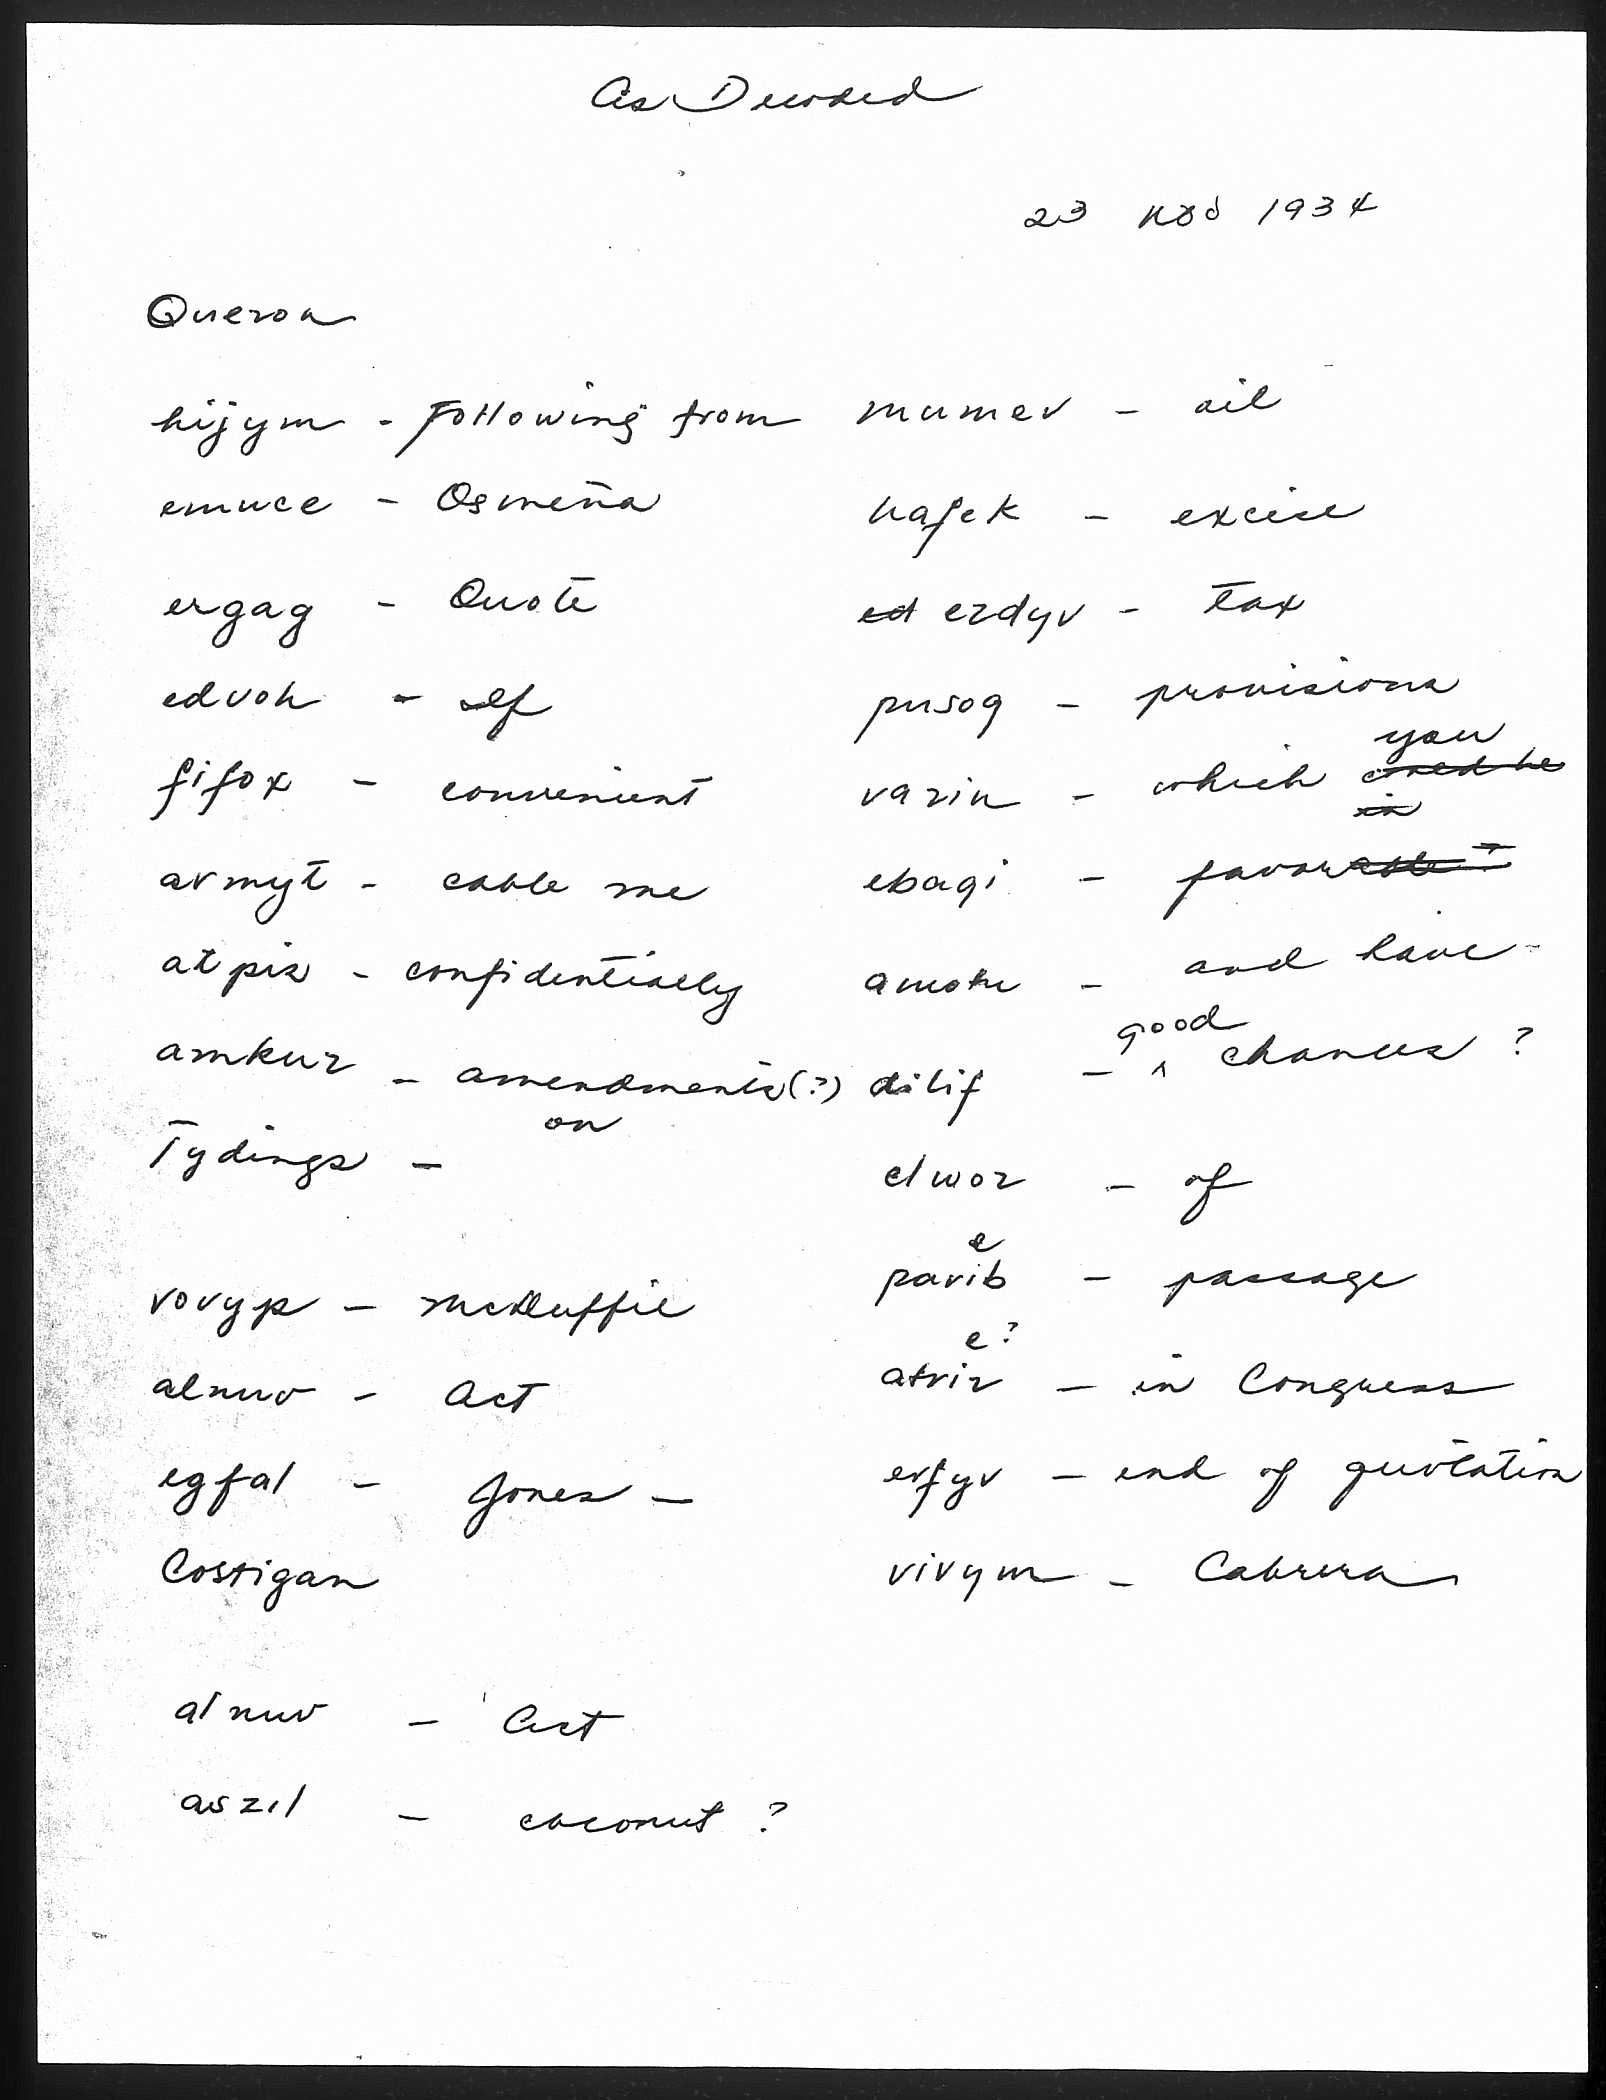 As Decoded
23 Nov 1934
Quezon
hijym - Following from
emuce - Osmeña
ergag - Quote
edvoh - If
fifox - convenient
avmyt - cable me
atpiz - confidentially
amkur - amendments(?)
on
Tydings -
vovyp - McDuffie
alnuv - Act
egfal - Jones -
Costigan
alnuv - Act
aszil - coconut ?
mumev - oil
hafek - excise
ed erdyv - tax
pusog - provisions
you
varin - which
in
ebaqi - favorable
- and have -
good
dilif - ^ chances ?
elwor - of
e
pavib - passage
e ?
atviz - in Congress
evfyv - end of quotation
vivym - Cabrera